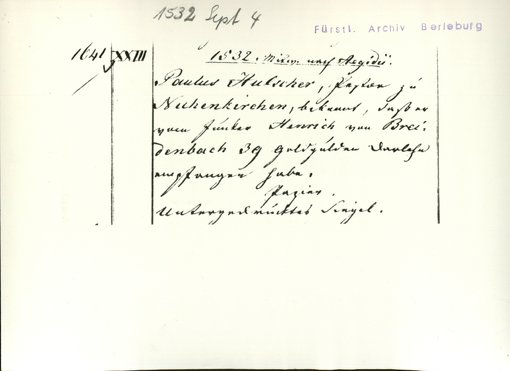 1532 Sept 4
Fürstl. Archiv Berleburg
1641 XXIII
1532. Mitw. nach Aegidii.
Paulus Hutscher, Pastor zu
Nuhenkirchen, bekennt, daß er
vom Junker Henrich von Brei-
denbach 39 Goldgülden Darlehn
empfangen habe.
Papier.
Untergedrücktes Siegel.